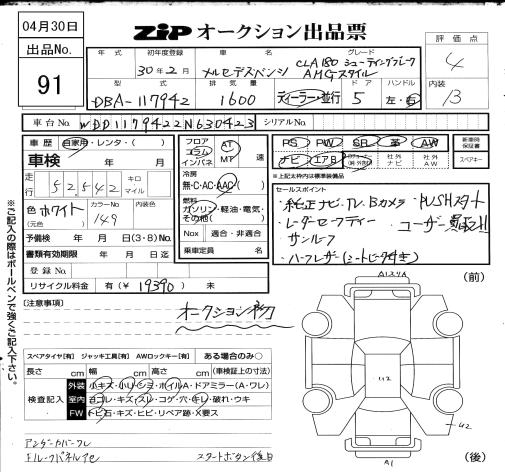 04月30日
ZiP オークション出品票
評価点
4
出品No.
91
年式 初年度登録 車名 グレード
30年2月 メルセデスベンツ CLA180 シューティングブレーク AMGスタイル
型式 排気量 ドア ハンドル
DBA-117942 1600 ディーラー・並行 5 左・右
内装
B
車台No. WDD1179422N630423 シリアルNo.
車歴 自家用・レンタ・( )
車検 年 月
走行 52,542 キロ マイル
色 ホワイト (元色) カラーNo 149 内装色
予備検 年 月 日(3・8)No.
書類有効期限 年 月 日
登録No.
リサイクル料金 有(¥19390) 未
フロア コラム インパネ AT MT 速
冷房
無・C・AC・AAC( )
燃料
ガソリン・軽油・電気・その他( )
Nox 適合・非適合
乗車定員 名
PS PW SR 革 AW
ナビ エアB 社外ナビ 社外AW
新車時保証書
スペアキー
※上記太枠内は標準装備品
セールスポイント
・純正ナビ・TV・Bカメラ ・PUSHスタート
・レーダーセーフティー ・ユーザー買取!!
・サンルーフ
・ハーフレザー(シートヒーター付き)
※ご記入の際はボールペンで強くご記入下さい。
[注意事項]
オークション初
スペアタイヤ[有] ジャッキ工具[有] AWロックキー[有] ある場合のみ○
長さ cm 幅 cm 高さ cm (車検証上の寸法)
検査記入
外装 小キズ・小ハリ・シミ・ホイルA・ドアミラー(A・ワレ)
室内 ヨゴレ・キズ・スレ・コゲ・穴・キレ・破れ・ウキ
FW トビ石・キズ・ヒビ・リペア跡・X要ス
アンダーカバーワレ
スタートボタン後日
(前)
U2
U2
A1
(後)